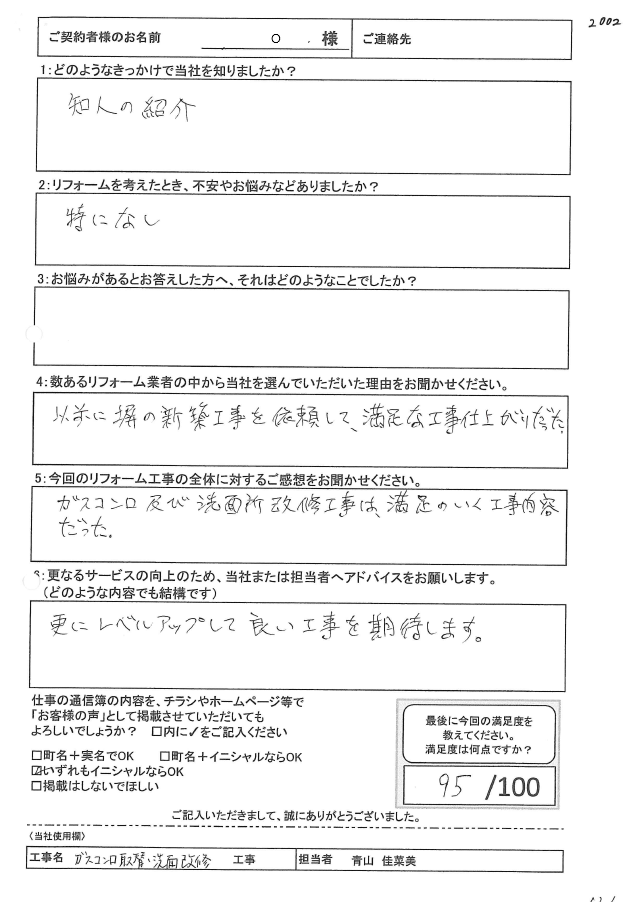 2002
ご契約者様のお名前 O . 様 ご連絡先
1:どのようなきっかけで当社を知りましたか？
知人の紹介
2:リフォームを考えたとき、不安やお悩みなどありましたか？
特になし
3:お悩みがあるとお答えした方へ、それはどのようなことでしたか？
4:数あるリフォーム業者の中から当社を選んでいただいた理由をお聞かせください。
以前に塀の新築工事を依頼して、満足な工事仕上がりだった。
5:今回のリフォーム工事の全体に対するご感想をお聞かせください。
ガスコンロ及び洗面所改修工事は、満足のいく工事内容
だった。
:更なるサービスの向上のため、当社または担当者へアドバイスをお願いします。
（どのような内容でも結構です）
更にレベルアップして良い工事を期待します。
仕事の通信簿の内容を、チラシやホームページ等で
「お客様の声」として掲載させていただいても
よろしいでしょうか？ □内に✓をご記入ください
□町名＋実名でOK □町名＋イニシャルならOK
☑いずれもイニシャルならOK
□掲載はしないでほしい
最後に今回の満足度を
教えてください。
満足度は何点ですか？
95 /100
ご記入いただきまして、誠にありがとうございました。
〈当社使用欄〉
工事名 ガスコンロ取替・洗面改修 工事 担当者 青山 佳菜美